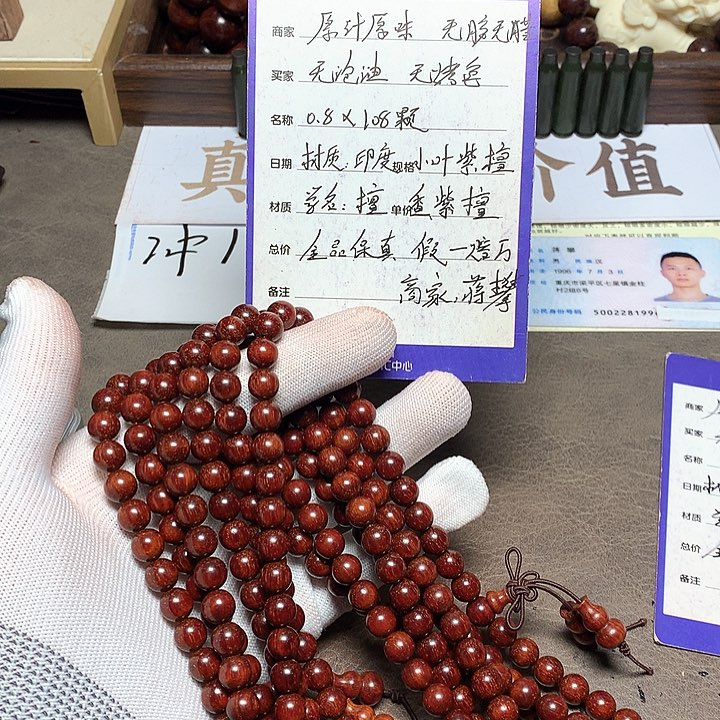 商家 原汁原味 无胶无腊
买家 无泡油 无烤色
名称 0.8×108颗
日期 材质:印度 规格 小叶紫檀
材质 学名:檀 单价 香紫檀
总价 全品保真 假一赔万
备注 商家:蒋攀
汇中心
真 价值
冲1
蒋攀
男
1996年7月3日
重庆市梁平区七星镇金柱
村2组6号
公民身份号码 500228199
商家
买家
名称
日期 材
材质
总价 全
备注